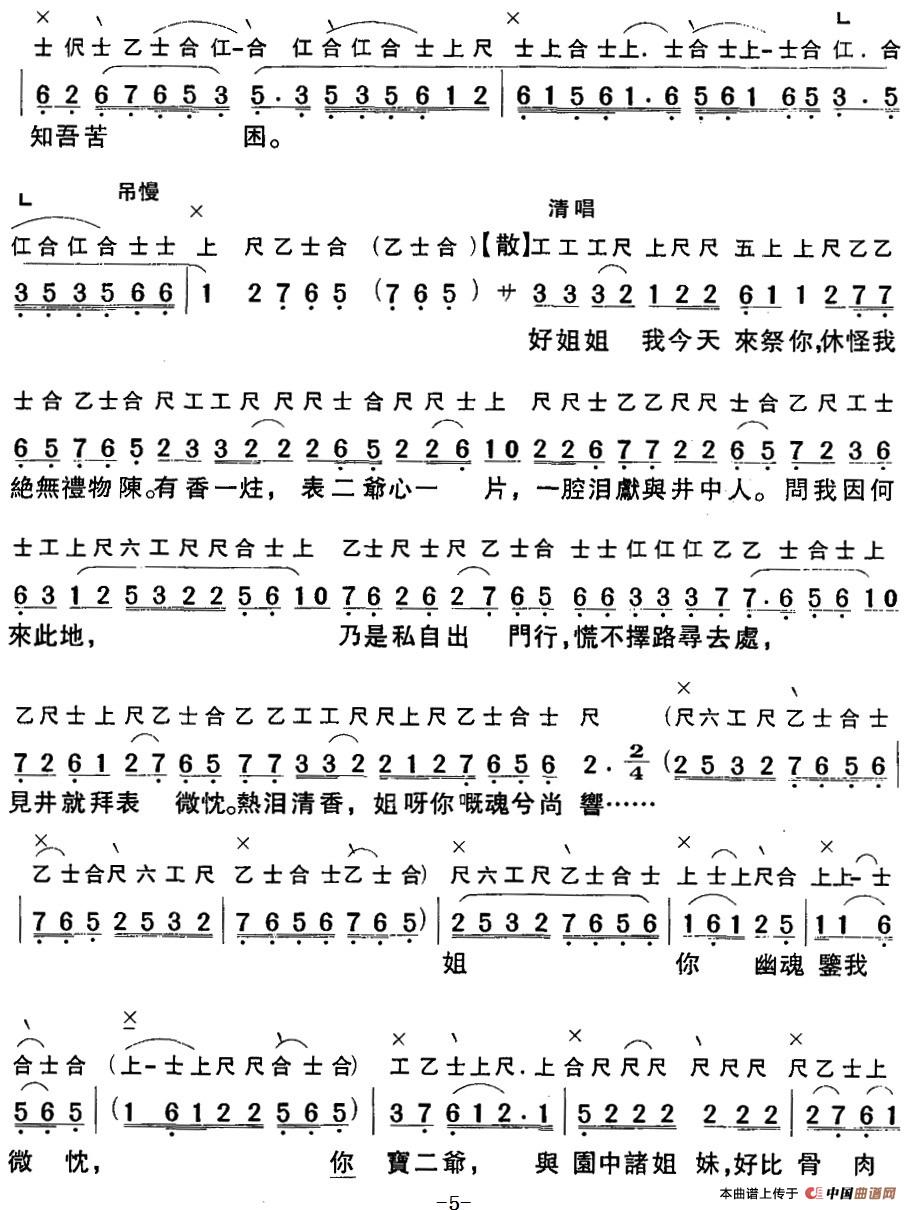 士伬士乙士合仜-合 仜合仜合士上尺 士上合士上.士合士上-士合仜.合
6 2 6 7 6 5 3 5.3 5 3 5 6 1 2 6 1 5 6 1.6 5 6 1 6 5 3.5
知吾苦 困。
吊慢 清唱
仜合仜合士士 上 尺乙士合 (乙士合)【散】工工工尺 上尺尺 五上上尺乙乙
3 5 3 5 6 6 1 2 7 6 5 (7 6 5) サ 3 3 3 2 1 2 2 6 1 1 2 7 7
好姐姐 我今天 來祭你,休怪我
士合乙士合尺工工尺尺尺士合尺尺士上 尺尺士乙乙尺尺士合乙尺工士
6 5 7 6 5 2 3 3 2 2 2 6 5 2 2 6 1 0 2 2 6 7 7 2 2 6 5 7 2 3 6
絕無禮物陳。有香一炷，表二爺心一 片，一腔泪獻與井中人。問我因何
士工上尺六工尺尺合士上 乙士尺士尺乙士合 士士仜仜仜乙乙 士合士上
6 3 1 2 5 3 2 2 5 6 1 0 7 6 2 6 2 7 6 5 6 6 3 3 3 7 7.6 5 6 1 0
來此地， 乃是私自出 門行,慌不擇路尋去處,
乙尺士上尺乙士合乙乙工工尺尺上尺乙士合士 尺 (尺六工尺乙士合士
7 2 6 1 2 7 6 5 7 7 3 3 2 2 1 2 7 6 5 6 2. 2/4 (2 5 3 2 7 6 5 6
見井就拜表 微忱。熱泪清香，姐呀你嘅魂兮尚 響……
乙士合尺六工尺 乙士合士乙士合) 尺六工尺乙士合士 上士上尺合 上上-士
7 6 5 2 5 3 2 7 6 5 6 7 6 5) 2 5 3 2 7 6 5 6 1 6 1 2 5 1 1 6
姐 你 幽魂鑒我
合士合 (上-士上尺尺合士合) 工乙士上尺.上合尺尺尺 尺尺尺尺 尺乙士上
5 6 5 (1 6 1 2 2 5 6 5) 3 7 6 1 2.1 5 2 2 2 2 2 2 2 7 6 1
微忱, 你 寶二爺, 與園中諸姐 妹,好比骨肉
-5-
本曲谱上传于 中国曲谱网